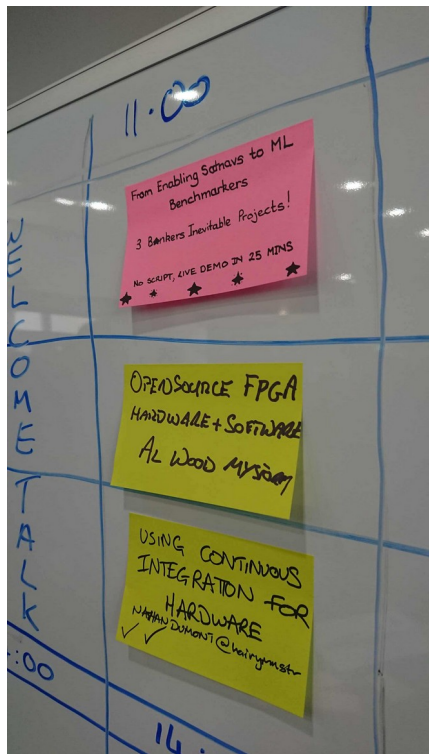 11.00
WELCOME TALK
From Enabling Satnavs to ML
Benchmarkers
3 Bankers Inevitable Projects!
NO SCRIPT, LIVE DEMO IN 25 MINS
OPENSOURCE FPGA
HARDWARE + SOFTWARE
AL WOOD MYSTORM
USING CONTINUOUS
INTEGRATION FOR
HARDWARE
NATHAN DUMONT @hairymnstr
:00
14